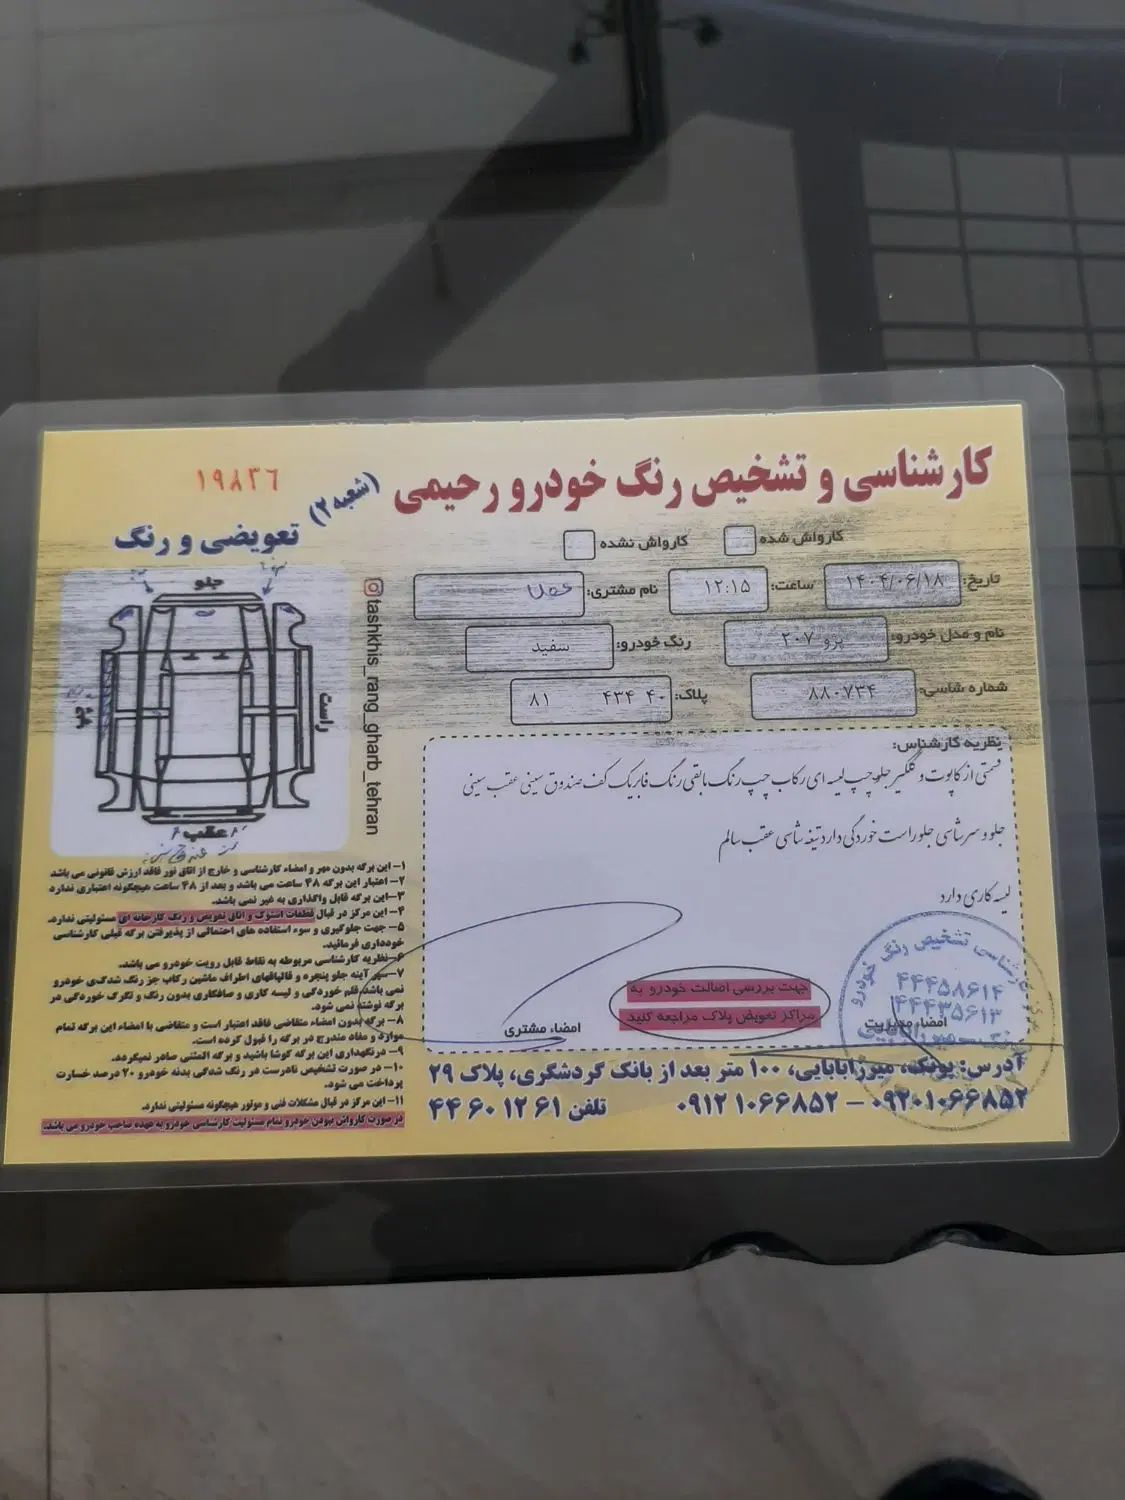 کارشناسی و تشخیص رنگ خودرو رحیمی (شعبه ۲)
۱۹۸۳۶
کارواش شده
کارواش نشده
تاریخ: ۱۴۰۴/۰۶/۱۸
ساعت: ۱۲:۱۵
نام مشتری:
نام و مدل خودرو: پژو ۲۰۷
رنگ خودرو: سفید
شماره شاسی: ۸۸۰۷۳۴
پلاک: ۴۰ ۴۳۴ ۸۱
نظریه کارشناس:
قسمتی از کاپوت و گلگیر جلو چپ لیسه ای رکاب چپ رنگ مابقی رنگ فابریک کف صندوق سینی عقب سینی
جلو و سر شاسی جلو راست خوردگی دارد تیغه شاسی عقب سالم
لیسه کاری دارد
جهت بررسی اصالت خودرو به
مراکز تعویض پلاک مراجعه کنید
امضاء مدیریت
امضاء مشتری
تشخیص رنگ خودرو
۴۴۴۵۸۶۱۴
۴۴۴۳۵۶۱۳
آدرس: پونک، میرزابابایی، ۱۰۰ متر بعد از بانک گردشگری، پلاک ۲۹
۰۹۲۰۱۰۶۶۸۵۲ – ۰۹۱۲۱۰۶۶۸۵۲ تلفن ۴۴۶۰۱۲۶۱
تعویضی و رنگ
جلو
راست
چپ
عقب
tashkhis_rang_gharb_tehran
۱– این برگه بدون مهر و امضاء کارشناسی و خارج از اتاق نور فاقد ارزش قانونی می باشد
۲– اعتبار این برگه ۴۸ ساعت می باشد و بعد از ۴۸ ساعت هیچگونه اعتباری ندارد
۳– این برگه قابل واگذاری به غیر نمی باشد.
۴– این مرکز در قبال قطعات استوک و اتاق تعویض و رنگ کارخانه ای مسئولیتی ندارد.
۵– جهت جلوگیری و سوء استفاده های احتمالی از پذیرفتن برگه قبلی کارشناسی
خودداری فرمائید.
۶– نظریه کارشناسی مربوطه به نقاط قابل رویت خودرو می باشد.
۷– سپر آینه جلو پنجره و قالپاقهای اطراف ماشین رکاب جز رنگ شدگی خودرو
نمی باشد قلم خوردگی و لیسه کاری و صافکاری بدون رنگ و تگرگ خوردگی در
برگه نوشته نمی شود.
۸– برگه بدون امضاء متقاضی فاقد اعتبار است و متقاضی با امضاء این برگه تمام
موارد و مفاد مندرج در برگه را قبول کرده است.
۹– در نگهداری این برگه کوشا باشید و برگه المثنی صادر نمیگردد.
۱۰– در صورت تشخیص نادرست در رنگ شدگی بدنه خودرو ۲۰ درصد خسارت
پرداخت می شود.
۱۱– این مرکز در قبال مشکلات فنی و موتور هیچگونه مسئولیتی ندارد.
در صورت کارواش نبودن خودرو تمام مسئولیت کارشناسی خودرو به عهده صاحب خودرو می باشد.